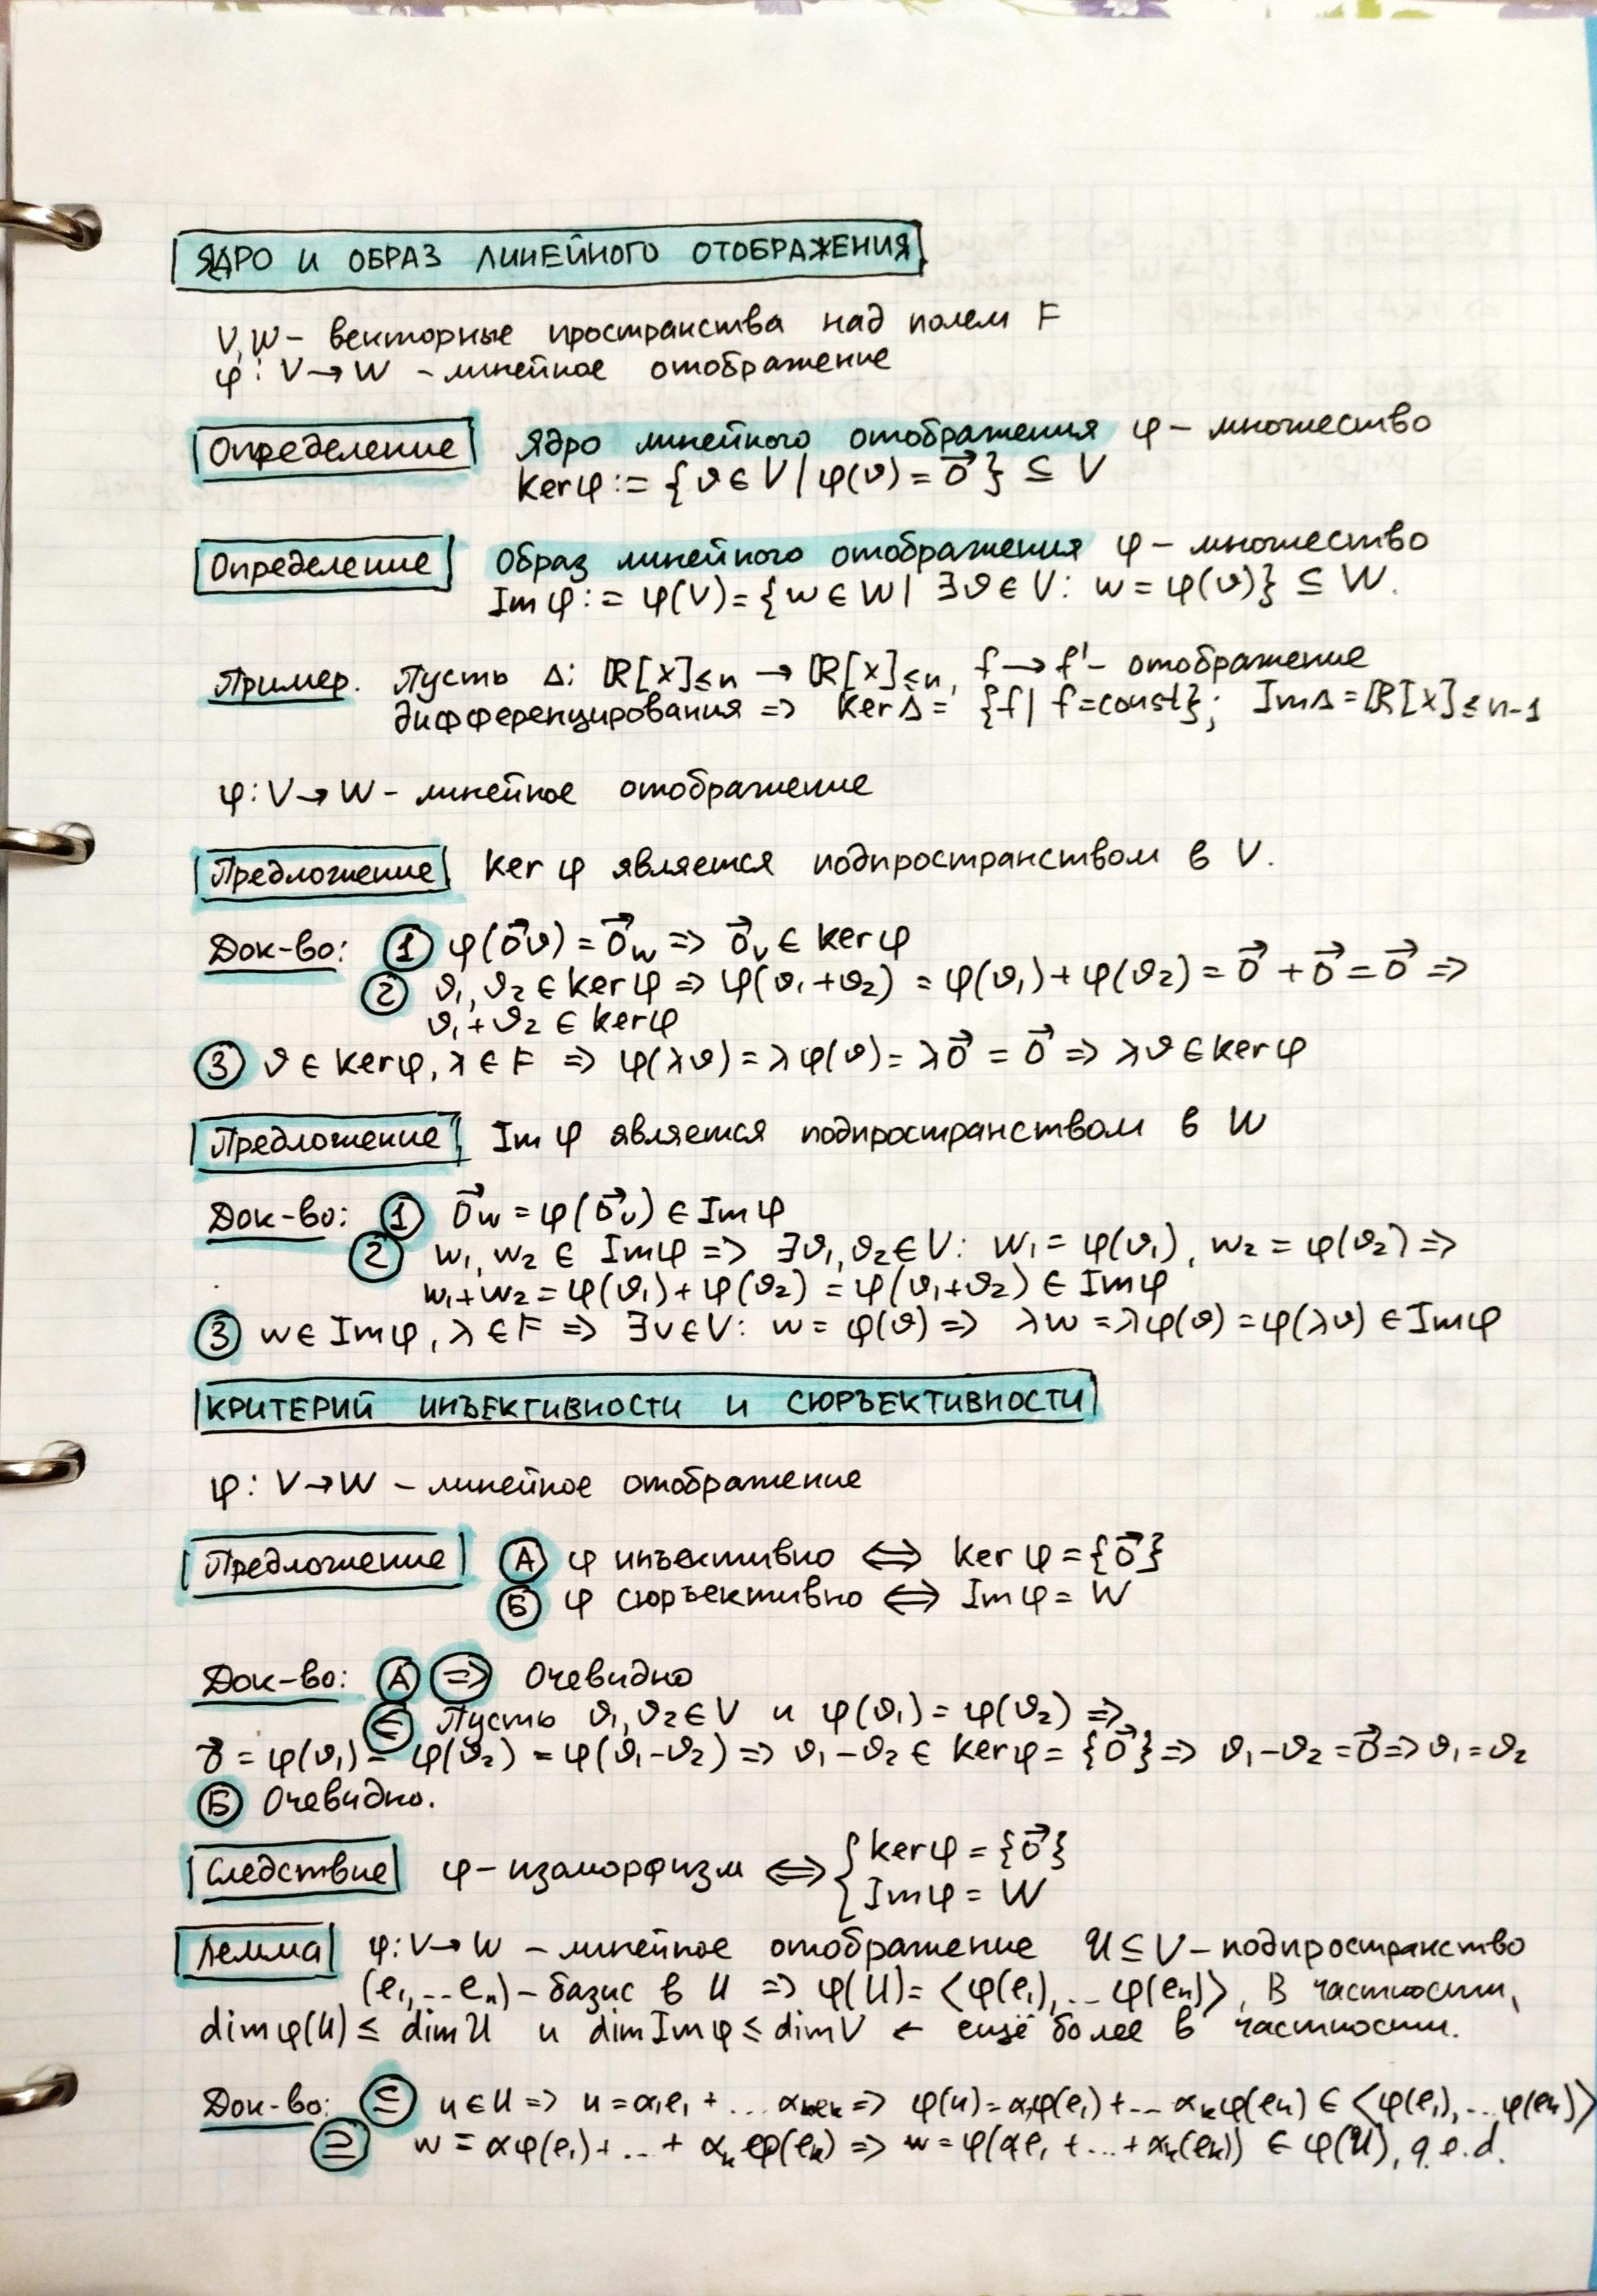 ЯДРО И ОБРАЗ ЛИНЕЙНОГО ОТОБРАЖЕНИЯ
V, W – векторные пространства над полем F
φ: V → W – линейное отображение
Определение Ядро линейного отображения φ – множество
Ker φ := {v ∈ V | φ(v) = 0⃗} ⊆ V
Определение Образ линейного отображения φ – множество
Im φ := φ(V) = {w ∈ W | ∃v ∈ V: w = φ(v)} ⊆ W.
Пример. Пусть Δ: ℝ[x]≤n → ℝ[x]≤n, f → f' – отображение
дифференцирования => Ker Δ = {f | f=const}; Im Δ = ℝ[x]≤n-1
φ: V → W – линейное отображение
Предложение Ker φ является подпространством в V.
Док-во: ① φ(0⃗v) = 0⃗w => 0⃗v ∈ ker φ
② v₁, v₂ ∈ ker φ => φ(v₁+v₂) = φ(v₁) + φ(v₂) = 0⃗ + 0⃗ = 0⃗ =>
v₁+v₂ ∈ ker φ
③ v ∈ ker φ, λ ∈ F => φ(λv) = λφ(v) = λ0⃗ = 0⃗ => λv ∈ ker φ
Предложение Im φ является подпространством в W
Док-во: ① 0⃗w = φ(0⃗v) ∈ Im φ
② w₁, w₂ ∈ Im φ => ∃v₁, v₂ ∈ V: w₁ = φ(v₁), w₂ = φ(v₂) =>
w₁+w₂ = φ(v₁) + φ(v₂) = φ(v₁+v₂) ∈ Im φ
③ w ∈ Im φ, λ ∈ F => ∃v ∈ V: w = φ(v) => λw = λφ(v) = φ(λv) ∈ Im φ
КРИТЕРИЙ ИНЪЕКТИВНОСТИ И СЮРЪЕКТИВНОСТИ
φ: V → W – линейное отображение
Предложение Ⓐ φ инъективно <=> ker φ = {0⃗}
Ⓑ φ сюръективно <=> Im φ = W
Док-во: Ⓐ => Очевидно
<= Пусть v₁, v₂ ∈ V и φ(v₁) = φ(v₂) =>
0⃗ = φ(v₁) – φ(v₂) = φ(v₁-v₂) => v₁-v₂ ∈ ker φ = {0⃗} => v₁-v₂ = 0⃗ => v₁=v₂
Б Очевидно.
Следствие φ – изоморфизм <=> { ker φ = {0⃗}
Im φ = W
Лемма φ: V → W – линейное отображение U ⊆ V – подпространство
(e₁,...eₙ) – базис в U => φ(U) = ⟨φ(e₁),... φ(eₙ)⟩, В частности,
dim φ(U) ≤ dim U и dim Im φ ≤ dim V ← ещё более в частности.
Док-во: ⊆ u ∈ U => u = α₁e₁ + ... αₖeₖ => φ(u) = α₁φ(e₁) + ... αₖφ(eₖ) ∈ ⟨φ(e₁),... φ(eₖ)⟩
⊇ w = αφ(e₁) + ... + αₖφ(eₖ) => w = φ(αe₁ + ... + αₖ(eₖ)) ∈ φ(U), q.e.d.